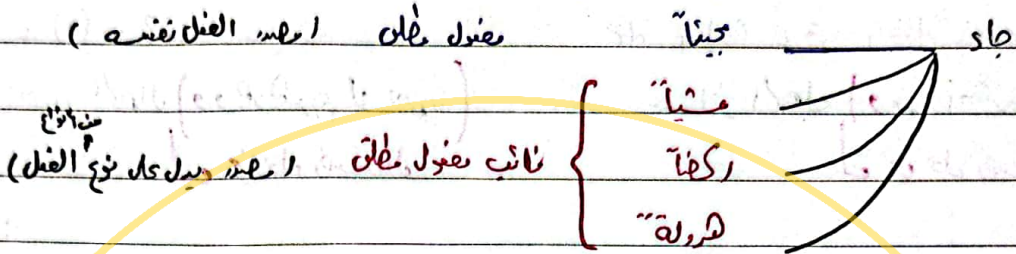 جاء مجيئاً مفعول مطلق (مصدر الفعل نفسه)
مشياً
ركضاً نائب مفعول مطلق (مصدر يدل على نوع من أنواع الفعل)
هرولةً